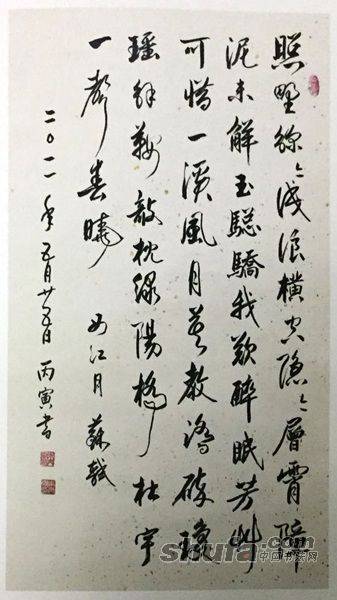 照野弥弥浅浪橫空隱隱層霄障
泥未解玉驄驕我欲醉眠芳艸
可惜一溪風月莫教踏破瓊
瑶解鞍敧枕綠陽橋杜宇
一聲春曉 西江月 蘇軾
二〇一一年五月廿五日丙寅書
shufa.com
中国书法网